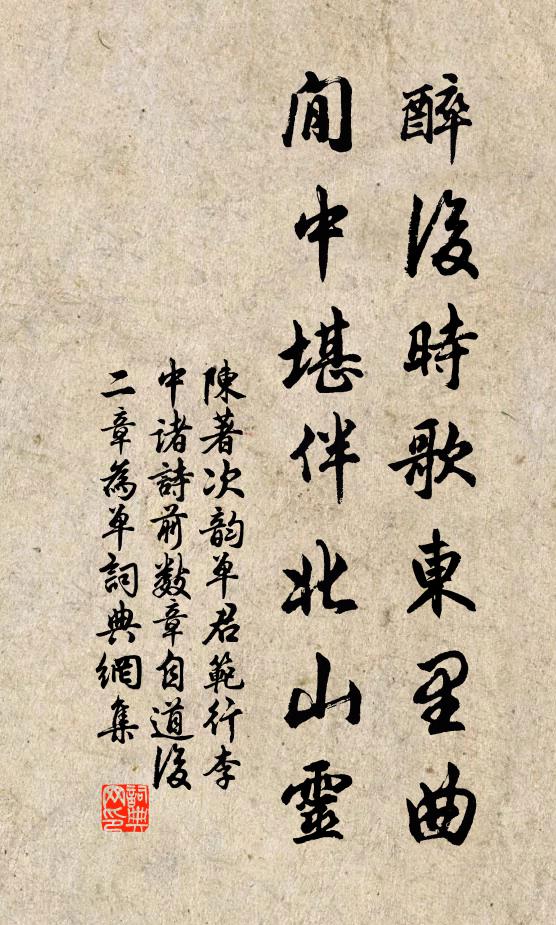 醉後時歌東里曲
閒中堪伴北山靈
陳著次韵單君範行李
中諸詩前數章自道後
二章為單詞典網集
詞典网印